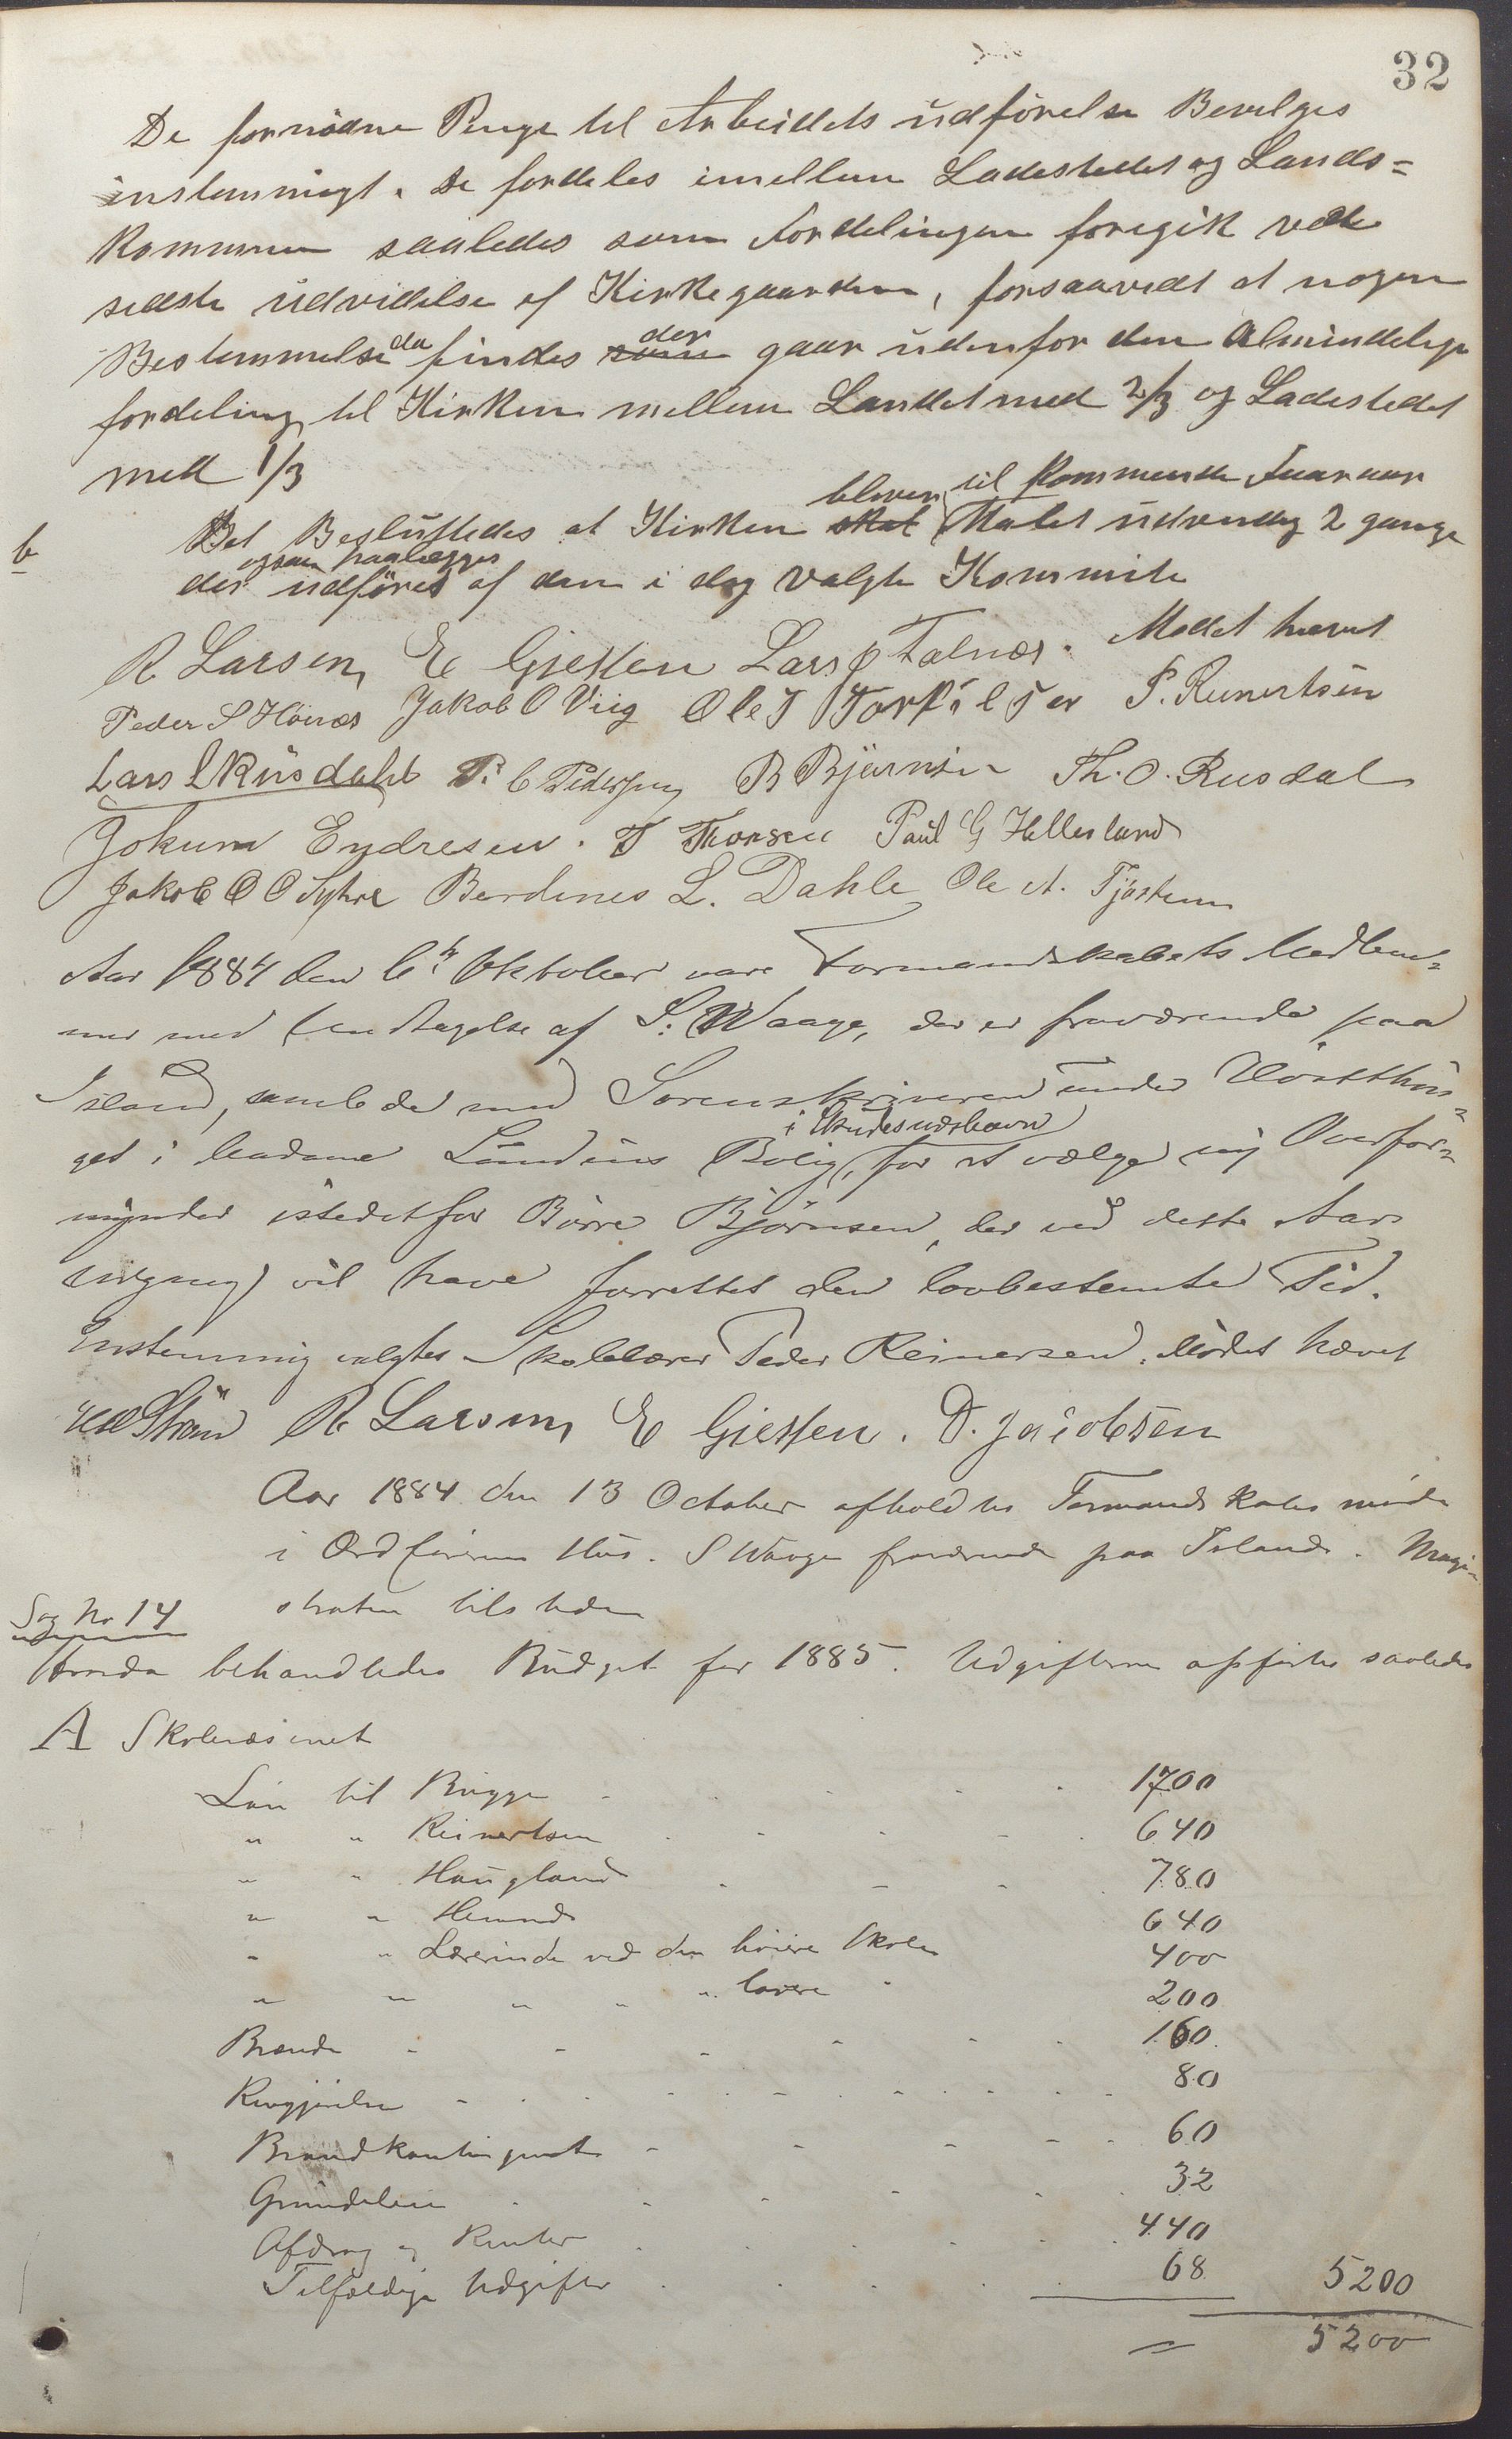 32
De fornödne Penge til Arbeidets udförelse Bevilges
enstemmigt. De fordeles imellem Ladestedet og Lands=
kommunen saaledes som Fordelingen foregik ved
sidste udvidelse af Kirkegaarden, forsaavidt at nogen
Bestemmelse da findes der gaar udenfor den Almindelige
fordeling til Kirken mellem Landet med 2/3 og Ladestedet
med 1/3
b Det Besluttedes at Kirken bliver til kommende Foraar Malet udvendig 2 gange
der ogsaa paalægges udföres af den i dag valgte Kommite
Mødet hævet
R Larsen, E Gjessen Lars O Falnæs.
Peder S Hönæs Jakob O Viig Ole T Torkilsen P. Reinertsen
Lars L Riisdahl P. C Pedersen B Björnsen Th. O. Riisdal
Jokum Endresen. T Thorsen Paul G Hellesland
Jakob O O Syhre Berdines L. Dahle Ole A. Tjöstem
Aar 1884 den 6te Oktober vare Formandskabets Medlem=
mer med Undtagelse af S. Waage, der er fraværende paa
Island, samlede med Sorenskriveren under Høstthin=
get i Madame Bolig i Skudesneshavn, for at vælge ny Overfor=
mynder istedetfor Börre Björnsen, der ved dette Aars
Udgang vil have forrettet den lovbestemte Tid.
Enstemmig valgtes Skolelærer Peder Reinersen. Mödet hævet
R Larsen, E Gjessen. D. Jacobsen
Aar 1884 den 13 October afholdtes Formandskabsmöde
i Ordförerens Hus. S Waage fraværende paa Island. Magi=
straten tilstede
Sag No 14
Herredet behandledes Budget for 1885. Udgifterne opförtes saaledes
A Skolevæsenet
Lön til Bugge 1700
" " Reinertsen 640
" " Haugland 780
" " 640
" " Lærerinde ved den höiere Skole 400
" " " " " lavere " 200
Brænde 160
Rengjörelse 80
Brandkontingent 60
Grundleie 32
Afdrag og Renter 440
Tilfældige Udgifter 68 5200
5200